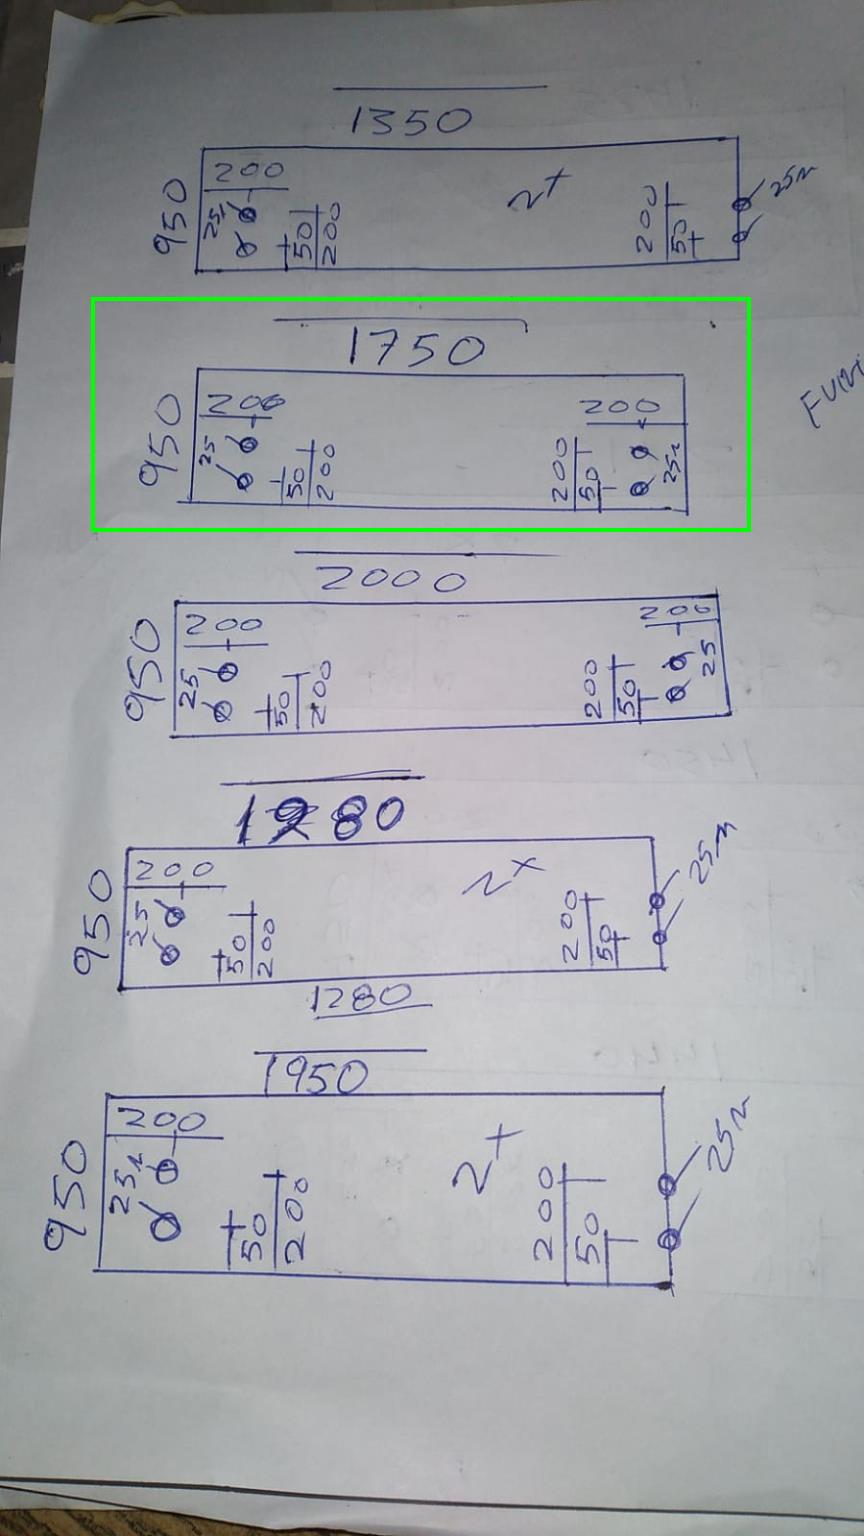 1350
950
200
25
50
200
2x
200
50
25м
1750
950
200
25
50
200
200
50
200
25м
2000
950
200
25
50
200
200
50
200
25
1280
950
200
25
50
200
2x
200
50
25м
1280
1950
950
200
25м
50
200
2x
200
50
25м